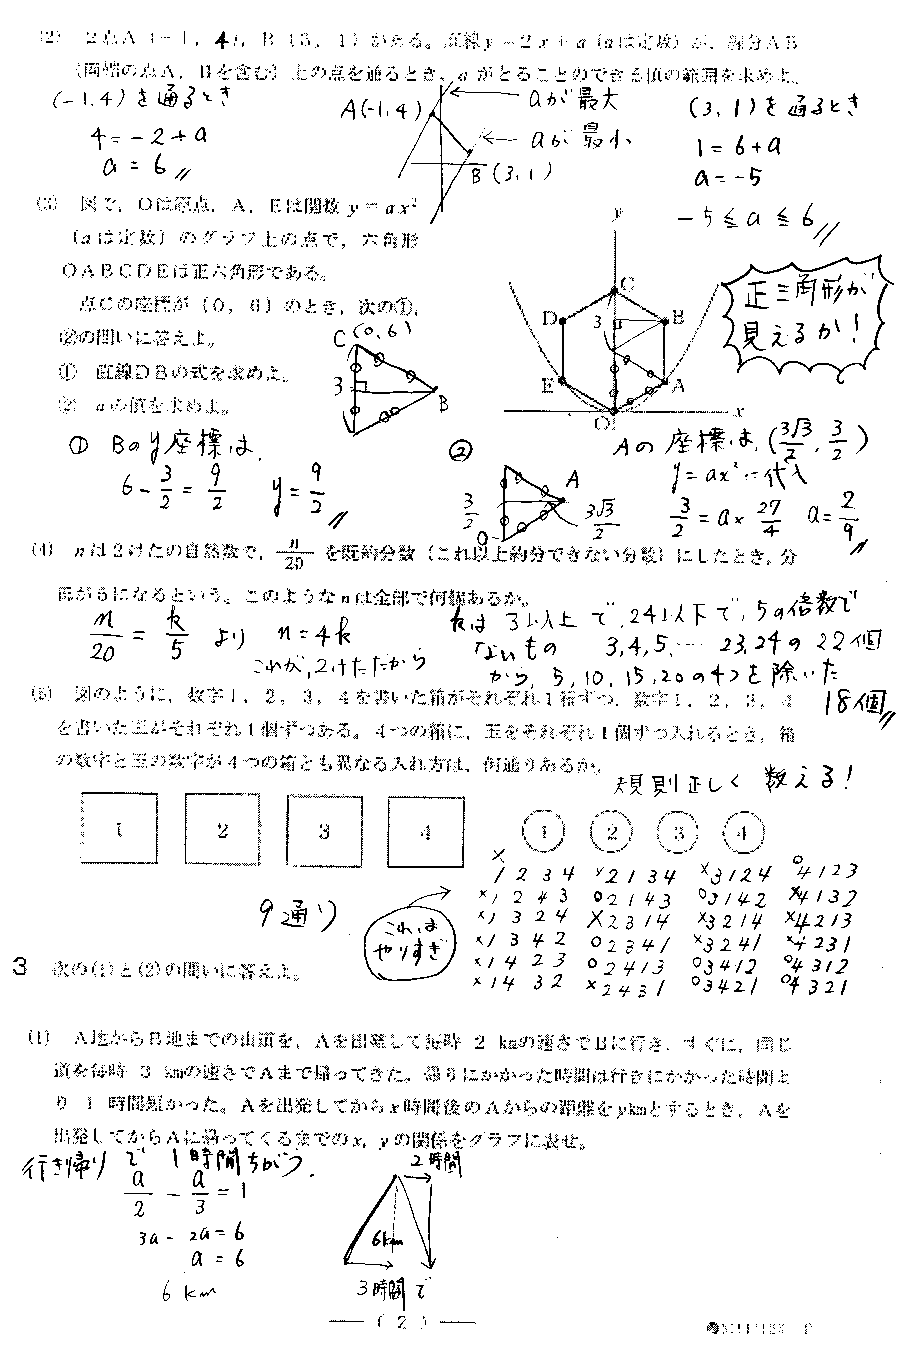 (2) 2点A(-1, 4), B(3, 1)がある。直線y=2x+a(aは定数)が、線分AB
(両端の点A, Bを含む)上の点を通るとき、aがとることのできる値の範囲を求めよ。
(-1,4)を通るとき
4=-2+a
a=6〃
A(-1,4)
aが最大
aが最小
B(3,1)
(3,1)を通るとき
1=6+a
a=-5
-5≦a≦6〃
(3) 図で、Oは原点、A, Eは関数y=ax²
(aは定数)のグラフ上の点で、六角形
OABCDEは正六角形である。
点Cの座標が(0, 6)のとき、次の①,
②の問いに答えよ。
① 直線DBの式を求めよ。
② aの値を求めよ。
C(0,6)
3
B
y
C
D
3
B
E
A
O
x
正三角形が
見えるか!
① Bのy座標は
6-3/2=9/2 y=9/2〃
②
3/2
A
O
3√3/2
Aの座標は(3√3/2, 3/2)
y=ax²に代入
3/2=a×27/4 a=2/9〃
(4) nは2けたの自然数で、n/20を既約分数(これ以上約分できない分数)にしたとき、分
母が5になるという。このようなnは全部で何個あるか。
n/20=k/5より n=4k
これが、2けただから
kは3以上で、24以下で、5の倍数で
ないもの 3,4,5,… 23,24の22個
から、5,10,15,20の4つを除いた
18個〃
(5) 図のように、数字1, 2, 3, 4を書いた箱がそれぞれ1箱ずつ、数字1, 2, 3, 4
を書いた玉がそれぞれ1個ずつある。4つの箱に、玉をそれぞれ1個ずつ入れるとき、箱
の数字と玉の数字が4つの箱とも異なる入れ方は、何通りあるか。
規則正しく 数える!
1 2 3 4 1 2 3 4
9通り
これは
やりすぎ
×1234 ×2134 ×3124 ○4123
×1243 ○2143 ○3142 ×4132
×1324 ×2314 ×3214 ×4213
×1342 ○2341 ×3241 ×4231
×1423 ○2413 ○3412 ○4312
×1432 ×2431 ○3421 ○4321
3 次の(1)と(2)の問いに答えよ。
(1) A地からB地までの山道を、Aを出発して毎時 2 kmの速さでBに行き、すぐに、同じ
道を毎時 3 kmの速さでAまで帰ってきた。帰りにかかった時間は行きにかかった時間よ
り 1 時間短かった。Aを出発してからx時間後のAからの距離をykmとするとき、Aを
出発してからAに帰ってくるまでのx, yの関係をグラフに表せ。
行き帰りで 1時間ちがう.
a/2-a/3=1
3a-2a=6
a=6
6km
2時間
6km
3時間で
(2)